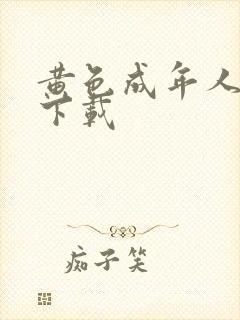 黄色成年人
下载
痴子笑